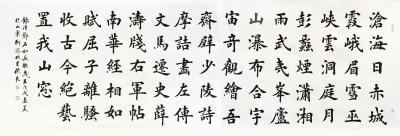 滄海日赤城
霞峨眉雪巫
峽雲洞庭月
彭蠡煙瀟湘
雨武夷峯廬
山瀑布合宇
宙奇觀繪吾
齋壁少陵詩
摩詰畫左傳
文馬遷史薛
濤牋右軍帖
南華經相如
賦屈子離騷
收古今絕藝
置我山窗